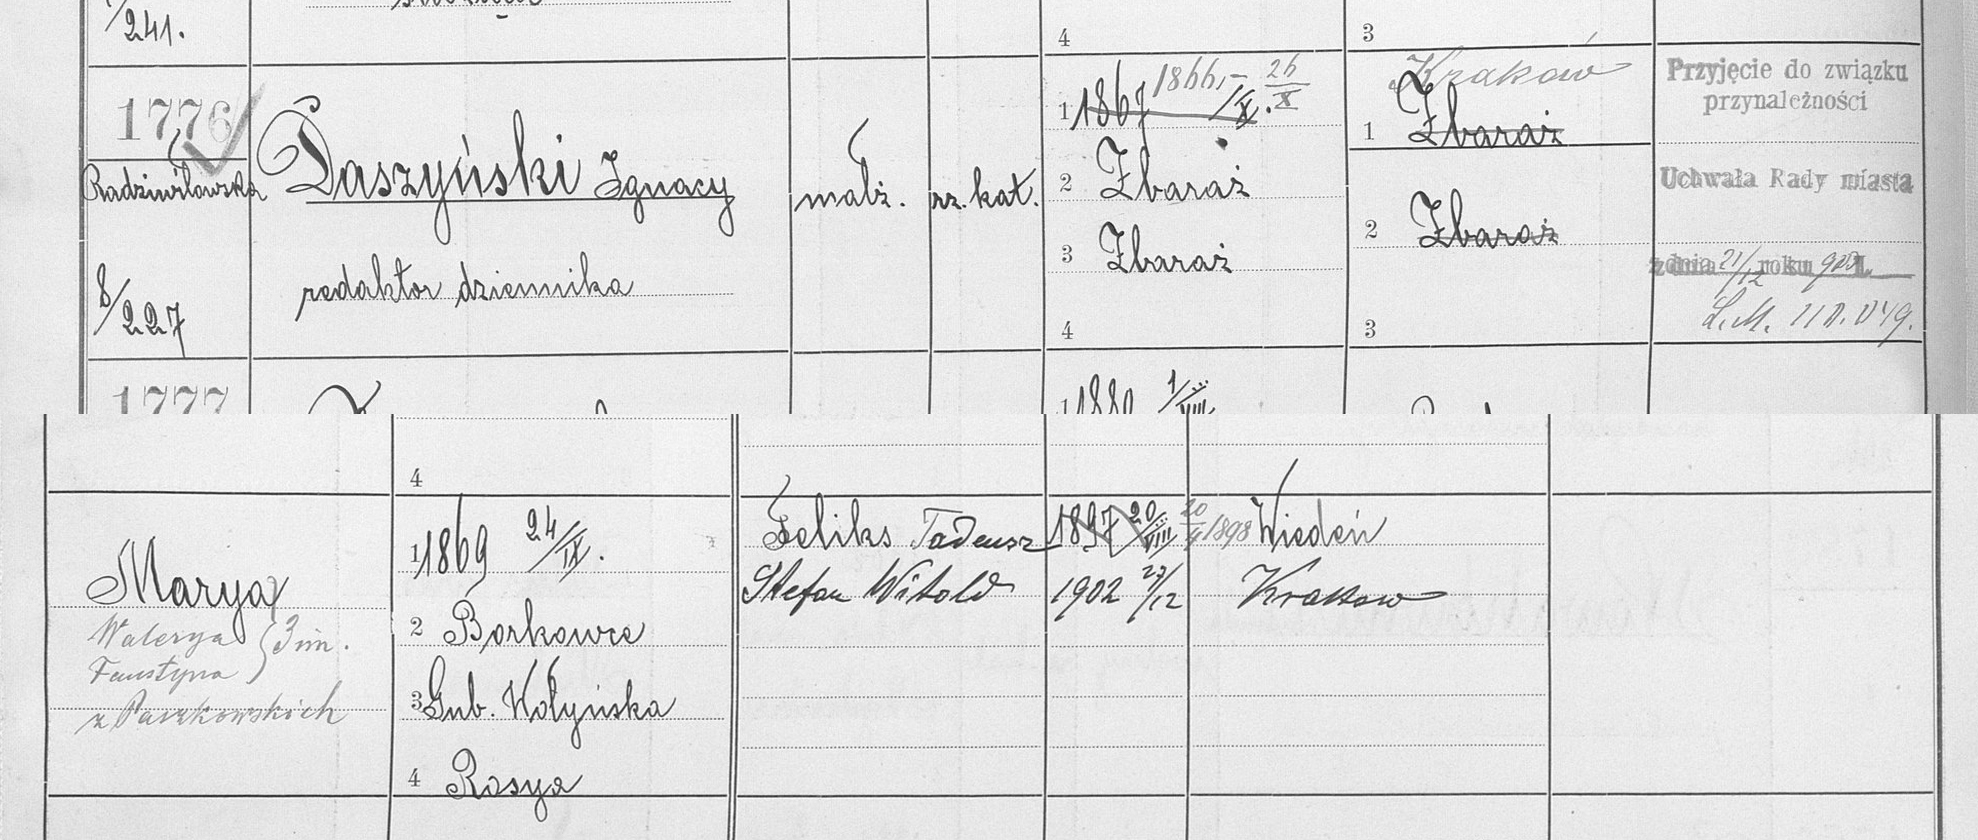 /241.
4
3
1776
Radziwiłowska
8/227
Daszyński Ignacy
redaktor dziennika
małż.
rz. kat.
1 1867 /X. 1866,- 26/X
2 Zbaraż
3 Zbaraż
4
Krakow
1 Zbaraż
2 Zbaraż
3
Przyjęcie do związku
przynależności
Uchwała Rady miasta
z dnia 21/12 roku
L.M.
1777
1 1880 1/VIII
4
Marya
Walerya } 3 im.
Faustyna
z Paszkowskich
1 1869 24/IX.
2 Borkowce
3 Gub. Wołyńska
4 Rosya
Feliks Tadeusz 1897 20/VIII 20/4 1898 Wiedeń
Stefan Witold 1902 27/12 Krakow